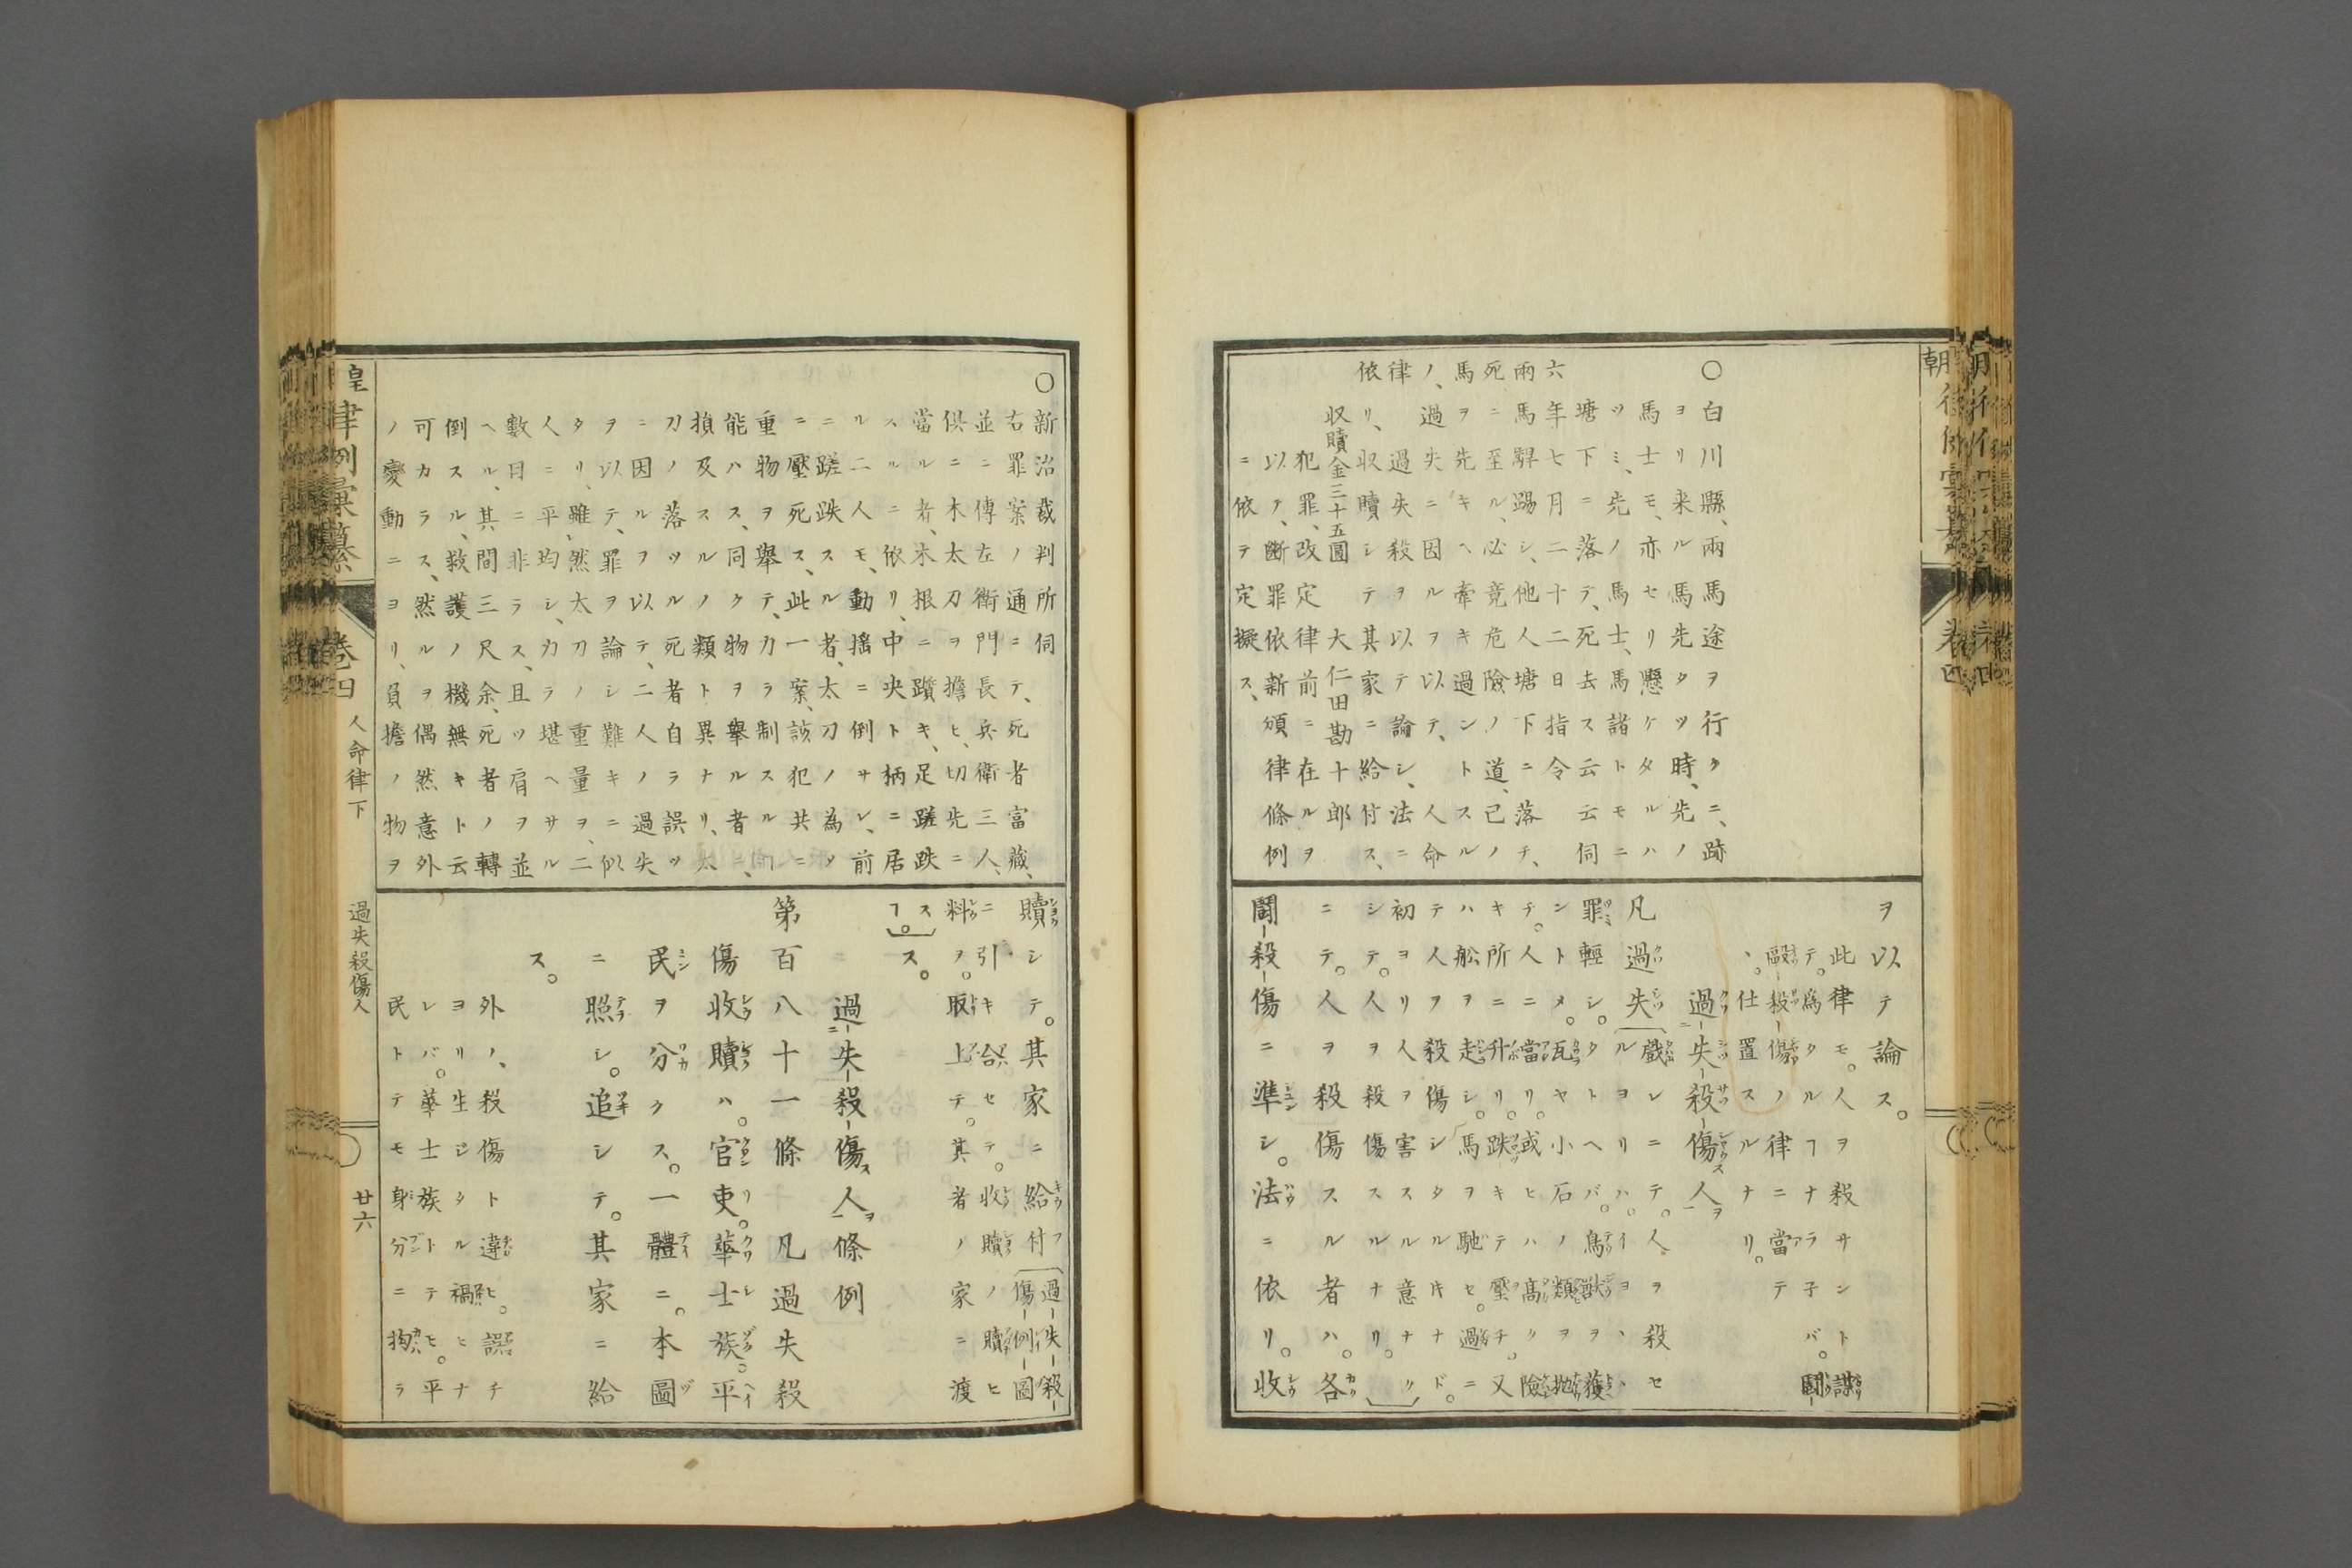 朝
卷四
○白川縣、兩馬途ヲ行クニ、跡
ヨリ来ル馬先タツ時、先ノ
馬士モ、亦セリ懸ケタルハ
ツミ、先ノ馬士、馬諸トモニ
塘下ニ落テ、死去ス云云伺
六年七月二十二日指令
兩馬騨踢シ、他人塘下ニ落チ、
死ニ至ル、必竟危險ノ道、已ノ
馬ヲ先キヘ牽キ過ントスル
ノ、過失ニ因ルヲ以テ、人命
律過失殺ヲ以テ論シ、法ニ
依リ、収贖シテ其家ニ給付ス、
収贖金三十五圓 大仁田勘十郎
犯罪、改定律前ニ在ルヲ
以テ、斷罪依新頒律條例
ニ依テ定擬ス、
ヲ以テ論ス。
此律モ。人ヲ殺サント謀
テ。為タルヿナラ子バ。鬪
毆殺傷ノ律ニ當テ
、。仕置スルナリ。
過失殺傷人
凡過失戯レニテ。人ヲ殺セ
ルヨリハ。イヨ、、
罪輕シ。タトヘバ。鳥獣ヲ獲
ントメ。瓦ヤ小石ノ類ヲ抛
テ。人ニ當リ。或ヒハ高ク險
キ所ニ升リ。跌キテ壓チ。又
ハ舩ヲ走シ。馬ヲ馳セ。過ニ
テ人ヲ殺傷シタルナド。
初ヨリ人ヲ害スル意ナク
シテ。人ヲ殺傷スルナリ。
ニテ。人ヲ殺傷スル者ハ。各
鬪殺傷ニ準シ。法ニ依リ。收
○新治裁判所伺
右罪案ノ通ニテ、死者富藏、
並ニ傳左衛門長兵衛三人、
倶ニ木太刀ヲ擔ヒ、切先ニ
當ル者、木根ニ躓キ、足蹉跌
スルニ依リ、中央ト柄ニ居
ル二人モ、動揺ニ倒サレ、前
ニ蹉跌スル者、太刀ノ為メ
ニ壓死ス、此一案、該犯共ニ
重物ヲ舉テ、力ラ制スルヿ
能ハス、同ク物ヲ舉ル者ニ、
損及スルノ類ト異ナリ、太
刀ノ落ツル死者自ラ誤ツ
ニ因ルヲ以テ、二人ノ過失
ヲ以テ、罪ヲ論シ難キニ似
タリ、雖然太刀ノ重量ヲ、二
人ニ平均シ、力ラ堪ヘサル
數日ニ非ラス、且ツ肩ヲ並
ヘル、其間三尺余、死者ノ轉
倒スル、救護ノ機無キト云
可カラス、然ルヲ偶然意外
ノ變動ニヨリ、負擔ノ物ヲ
贖シテ。其家ニ給付過失殺傷例圖
ニ引キ合セテ。收贖ノ贖ヒ
料ヲ。取上テ。其者ノ家ニ渡
スヿ。ス。
過失殺傷人條例
第百八十一條 凡過失殺
傷收贖ハ。官吏。華士族。平
民ヲ分クス。一體ニ。本圖
ニ照シ。追シテ。其家ニ給
ス。
外ノ、殺傷ト違ヒ。誤チ
ヨリ生ジタル禍ヒナ
レバ。華士族トテヒ。平
民トテモ身分ニ拘ラ
皇律例彙纂 卷四 人命律下 過失殺傷人 廿六